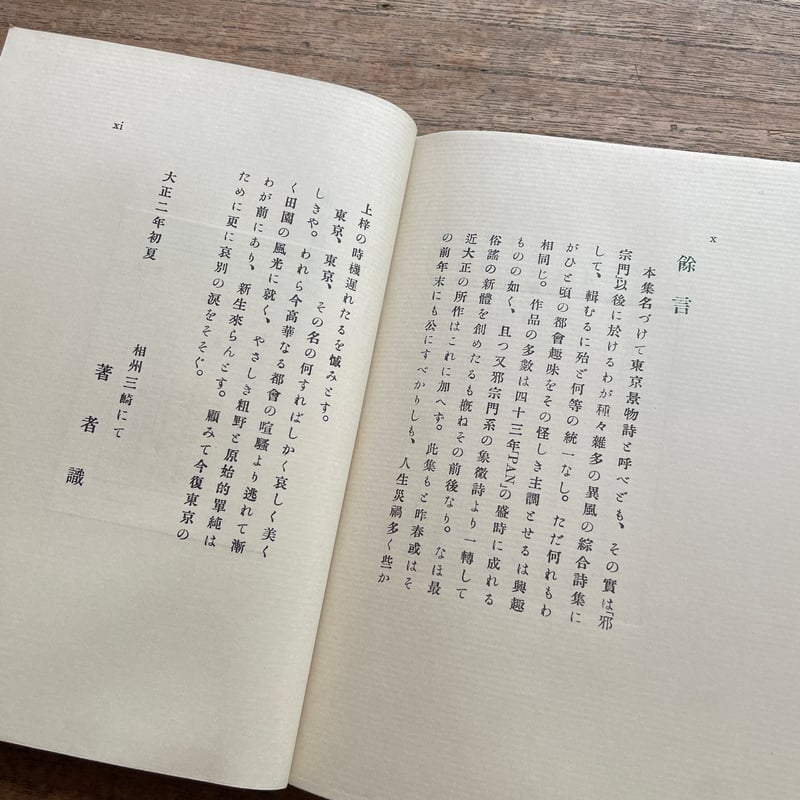 x
餘言
本集名づけて東京景物詩と呼べども、その實は『邪
宗門以後に於けるわが種々雜多の異風の綜合詩集に
して、輯むるに殆ど何等の統一なし。ただ何れもわ
がひと頃の都會趣味をその怪しき主調とせるは興趣
相同じ。作品の多數は四十三年『PAN』の盛時に成れる
ものの如く、且つ又邪宗門系の象徴詩より一轉して
俗謠の新體を創めたるも概ねその前後なり。なほ最
近大正の所作はこれに加へず。此集もと昨春或はそ
の前年末にも公にすべかりしも、人生災禍多く些か
xi
上梓の時機遲れたるを憾みとす。
東京、東京、その名の何すればしかく哀しく美く
しきや。われら今高華なる都會の喧騷より逃れて漸
く田園の風光に就く、やさしき粗野と原始的單純は
わが前にあり、新生來らんとす。顧みて今復東京の
ために更に哀別の涙をそそぐ。
大正二年初夏
相州三崎にて
著者識